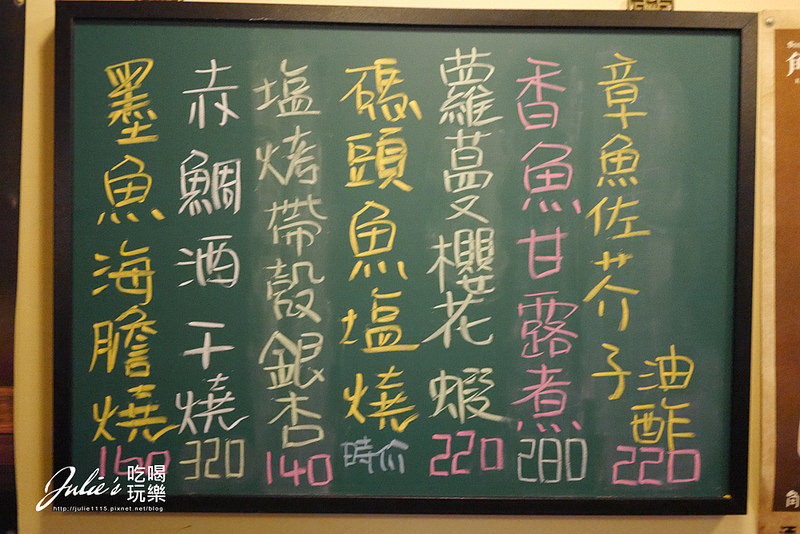 章魚佐芥子
油酢
220
香魚甘露煮
280
蘿蔓櫻花蝦
220
碼頭魚塩燒
時价
塩烤帶殼銀杏
140
赤鯛酒干燒
320
墨魚海膽燒
Julie's 吃喝
玩樂
http://julie1115.pixnet.net/blog